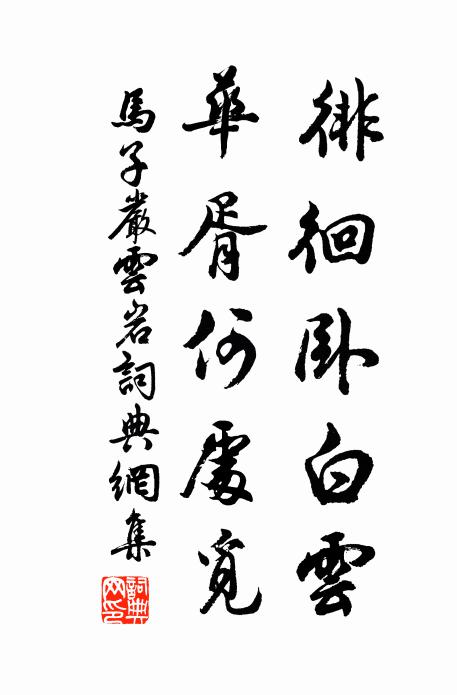 徘徊臥白雲
華胥何處覓
馬子嚴雲岩詞典網集
詞典网印